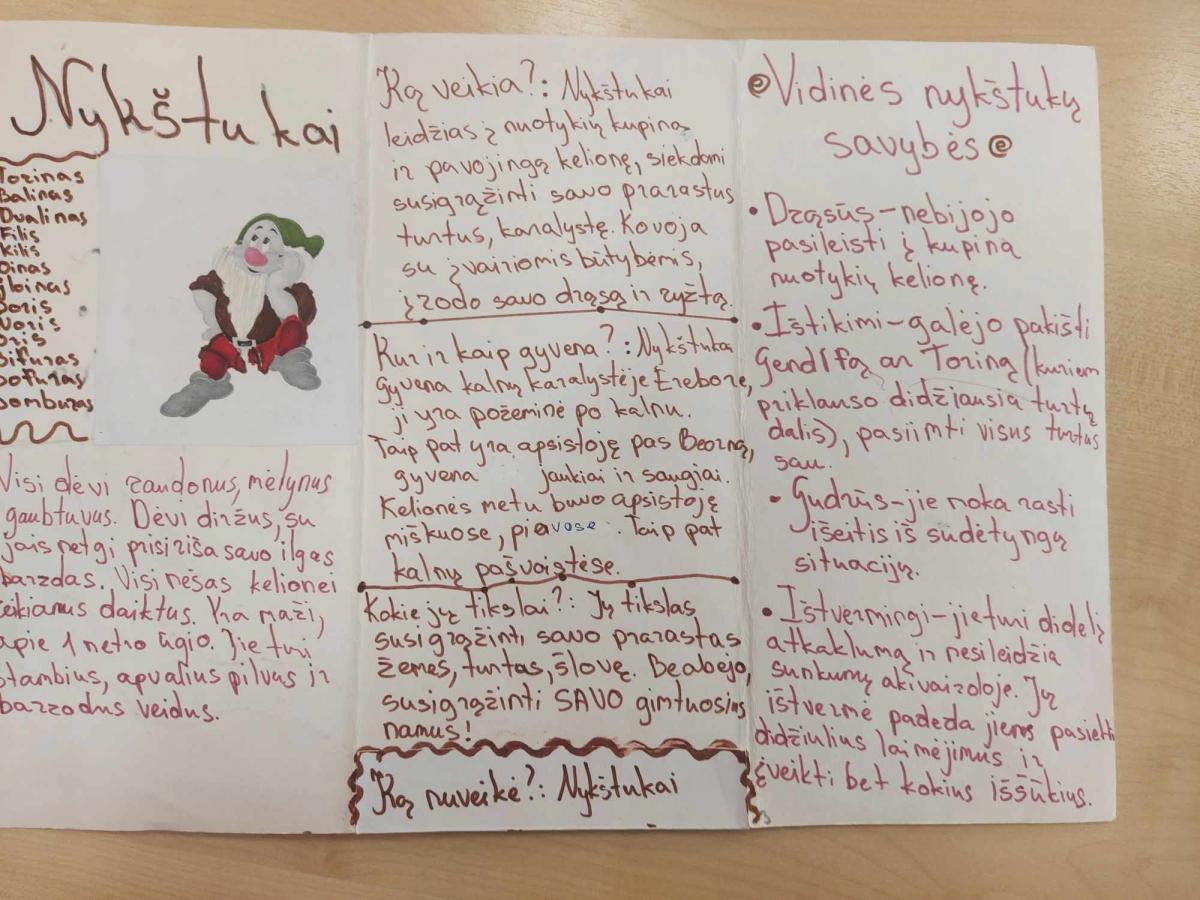 Nykštukai
Torinas
Balinas
Dvalinas
Filis
Kilis
Oinas
Doris
Noris
Oris
Bifuras
Bofuras
Bomburas
Visi dėvi raudonus, mėlynus
gaubtuvus. Dėvi diržus, su
jais netgi prisiriša savo ilgas
barzdas. Visi nešas kelionei
reikiamus daiktus. Yra maži,
apie 1 metro ūgio. Jie turi
stambius, apvalius pilvus ir
barzodus veidus.
Ką veikia?: Nykštukai
leidžias į nuotykių kupiną
ir pavojingą kelionę, siekdami
susigrąžinti savo prarastus
turtus, karalystę. Kovoja
su įvairiomis būtybėmis,
įrodo savo drąsą ir ryžtą.
Kur ir kaip gyvena?: Nykštukai
gyvena kalnų karalystėje Erebore,
ji yra požeminė po kalnu.
Taip pat yra apsistoję pas Beorną,
gyvena jaukiai ir saugiai.
Kelionės metu buvo apsistoję
miškuose, pievose. Taip pat
kalnų pašvaistėse.
Kokie jų tikslai?: Jų tikslas
susigrąžinti savo prarastas
žemes, turtas, šlovę. Beabejo,
susigrąžinti SAVO gimtuosius
namus!
Ką nuveikė?: Nykštukai
Vidinės nykštukų
savybės
• Drąsūs-nebijojo
pasileisti į kupina
nuotykių kelionę.
• Ištikimi-galėjo pakišti
Gendlfą ar Toriną (kuriem
priklauso didžiausia turtų
dalis), pasiimti visus turtus
sau.
• Gudrūs-jie moka rasti
išeitis iš sudėtyngų
situacijų.
• Ištvermingi-jie turi didelį
atkaklumą ir nesileidžia
sunkumų akivaizdoje. Jų
ištvermė padeda jiems pasiekti
didžiulius laimėjimus ir
įveikti bet kokius iššūkius.